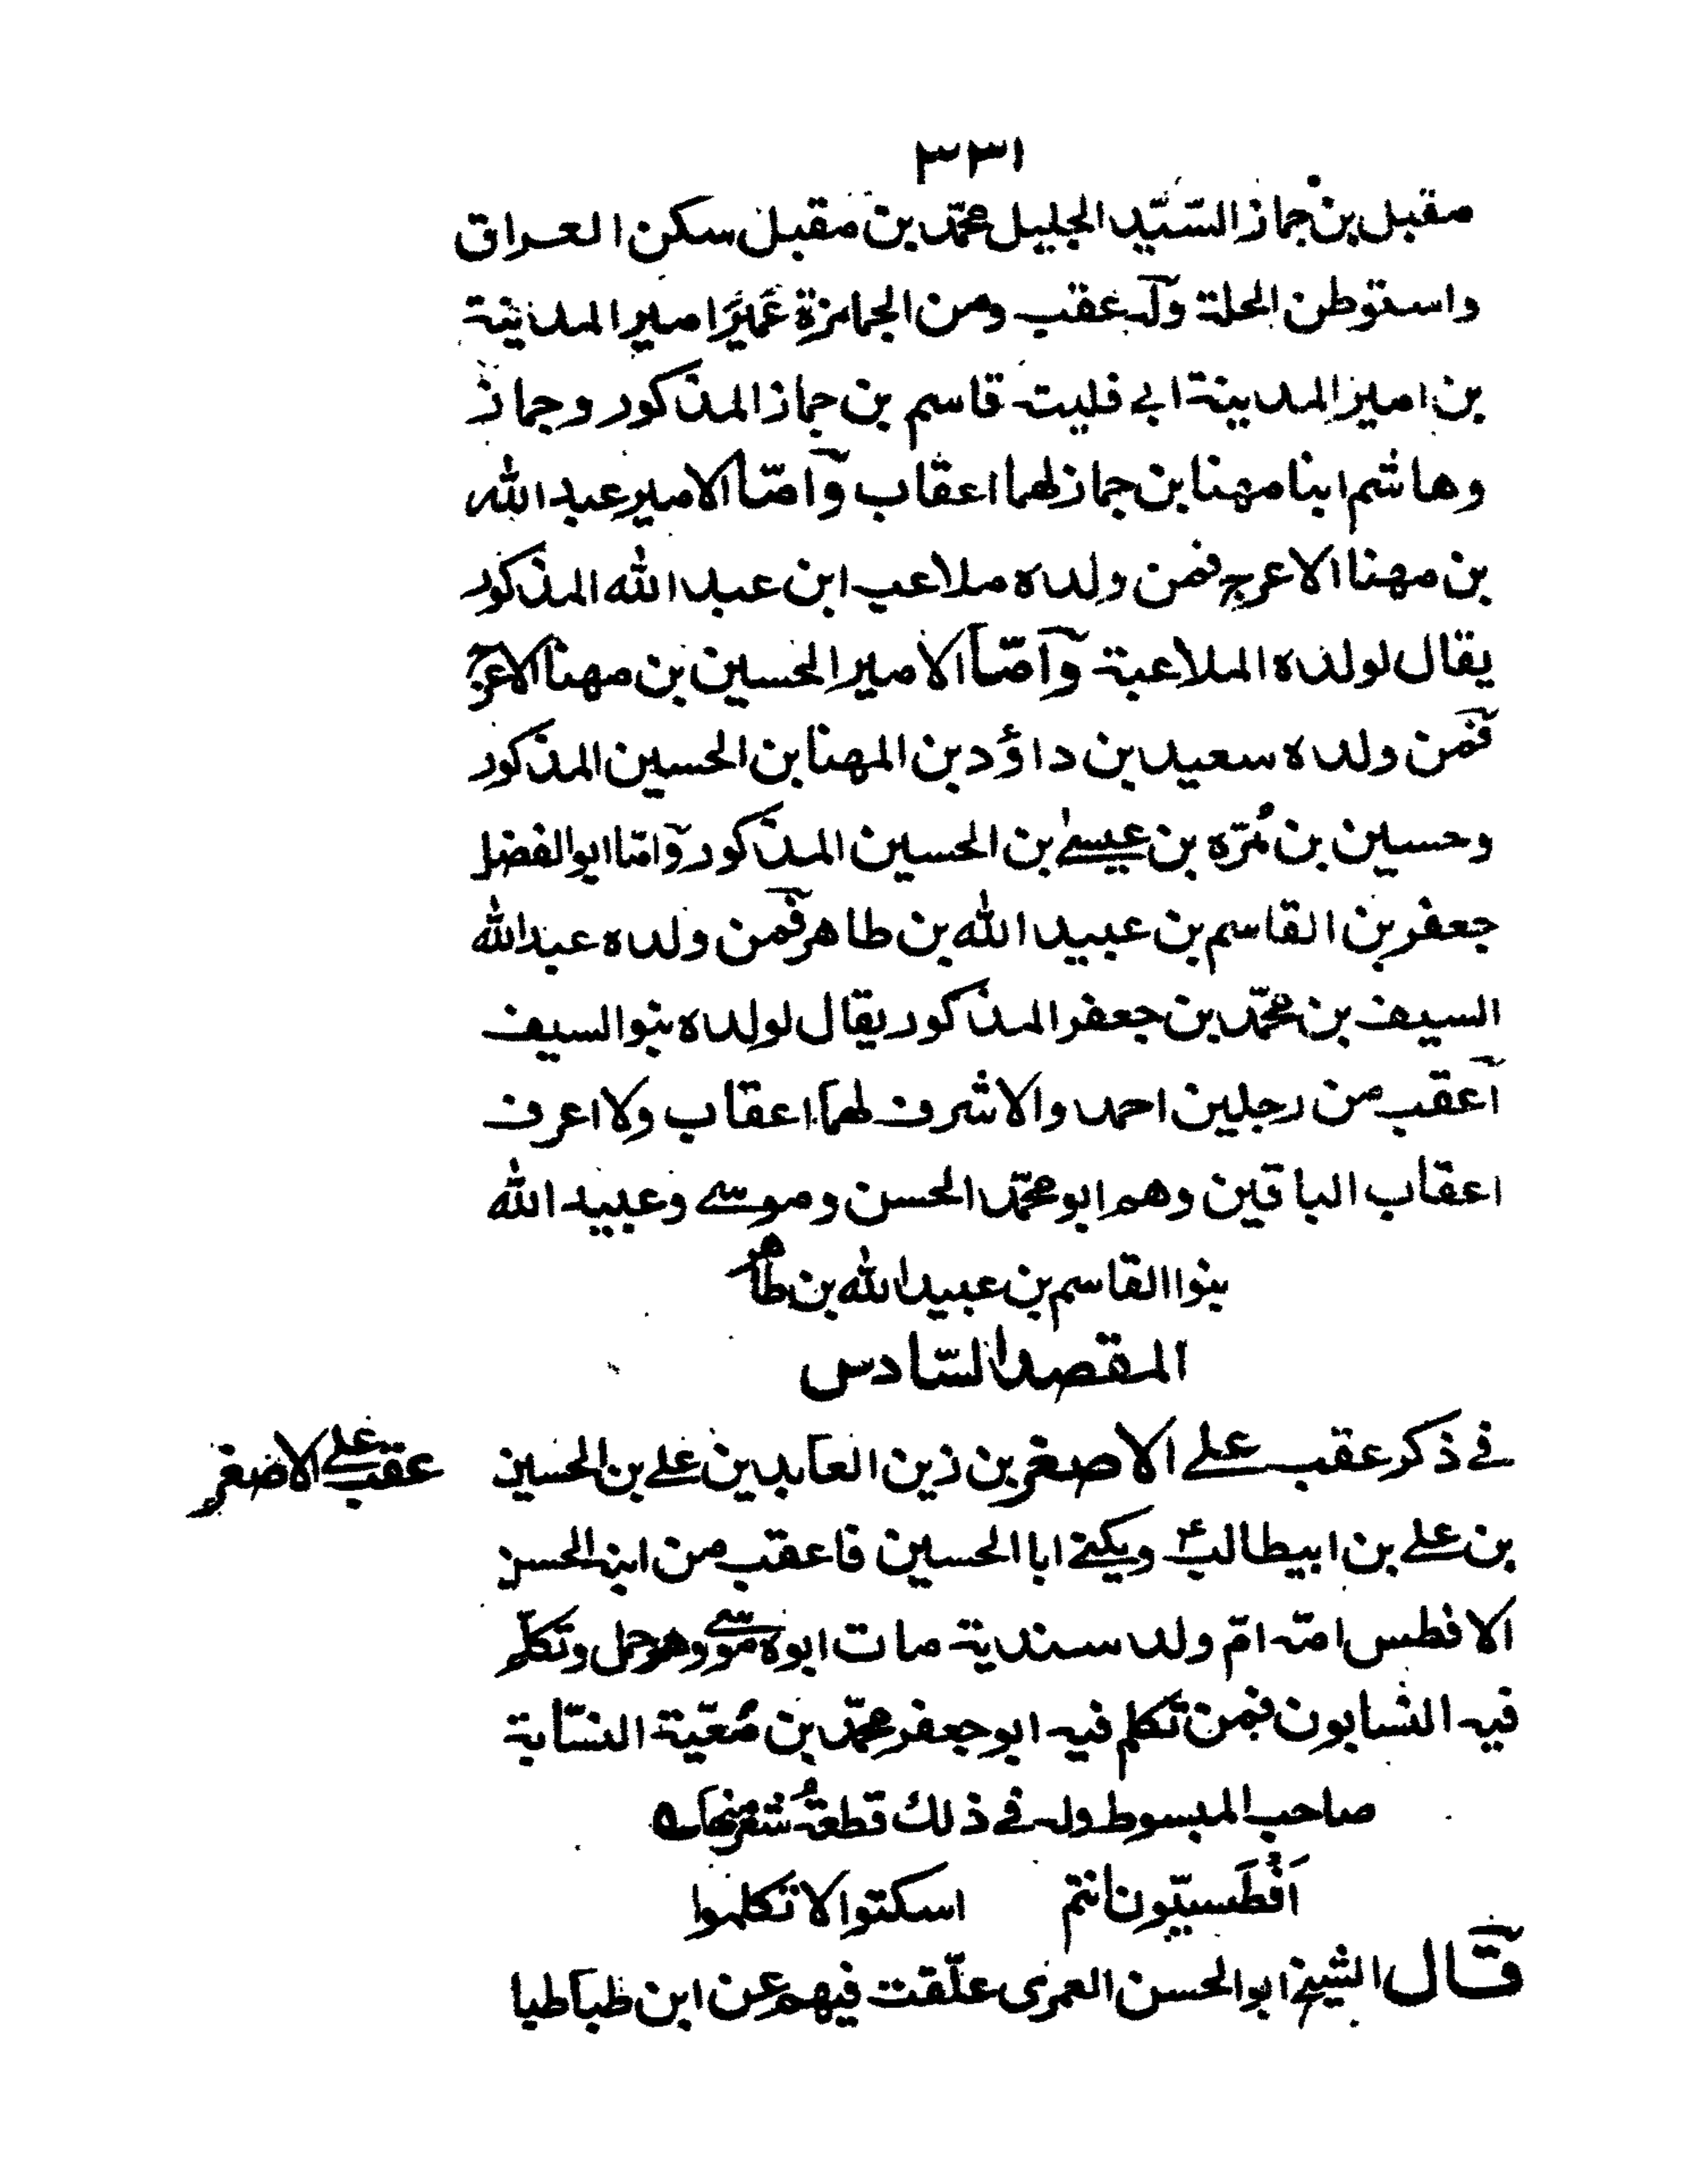 ٣٣١
مقبل بن جماز السّيّد الجليل محمّد بن مقبل سكن العراق
واستوطن الحلة وله عقب ومن الجمامزة عُمَيْرًا امير المدينة
بن امير المدينة ابي فليتة قاسم بن جماز المذكور وجماز
وهاشم ابنا مهنا بن جماز لهما اعقاب وآمّا الامير عبد الله
بن مهنا الاعرج فمن ولده ملاعب ابن عبد الله المذكور
يقال لولده الملاعبة وآمّا الامير الحسين بن مهنا الاعرج
فمن ولده سعيد بن داؤد بن المهنا بن الحسين المذكور
وحسين بن مُرّه بن عيسى بن الحسين المذكور وآمّا ابو الفضل
جعفر بن القاسم بن عبيد الله بن طاهر فمن ولده عبد الله
السيف بن محمّد بن جعفر المذكور يقال لولده بنوا السيف
آعقب من رجلين احمد والاشرف لهما اعقاب ولا اعرف
اعقاب الباقين وهم ابو محمّد الحسن وموسى وعبيد الله
بنوا القاسم بن عبيد الله بن طاهر
المقصد السّادس
في ذكر عقب علي الاصغر بن زين العابدين علي بن الحسين
عقب علي الاصغر
بن علي بن ابيطالب ع ويكنى ابا الحسين فاعقب من ابنه الحسن
الافطس امّه امّ ولد سندية مات ابوه وهو حمل وتكلّم
فيه النسابون فممن تكلم فيه ابو جعفر محمّد بن مُعّية النسّابة
صاحب المبسوط وله في ذلك قطعةُ شعر منها
اَفْطَسيّون انتم اسكتوا لا تكلموا
قال الشيخ ابو الحسن العمرى علّقت فيهم عن ابن طباطبا